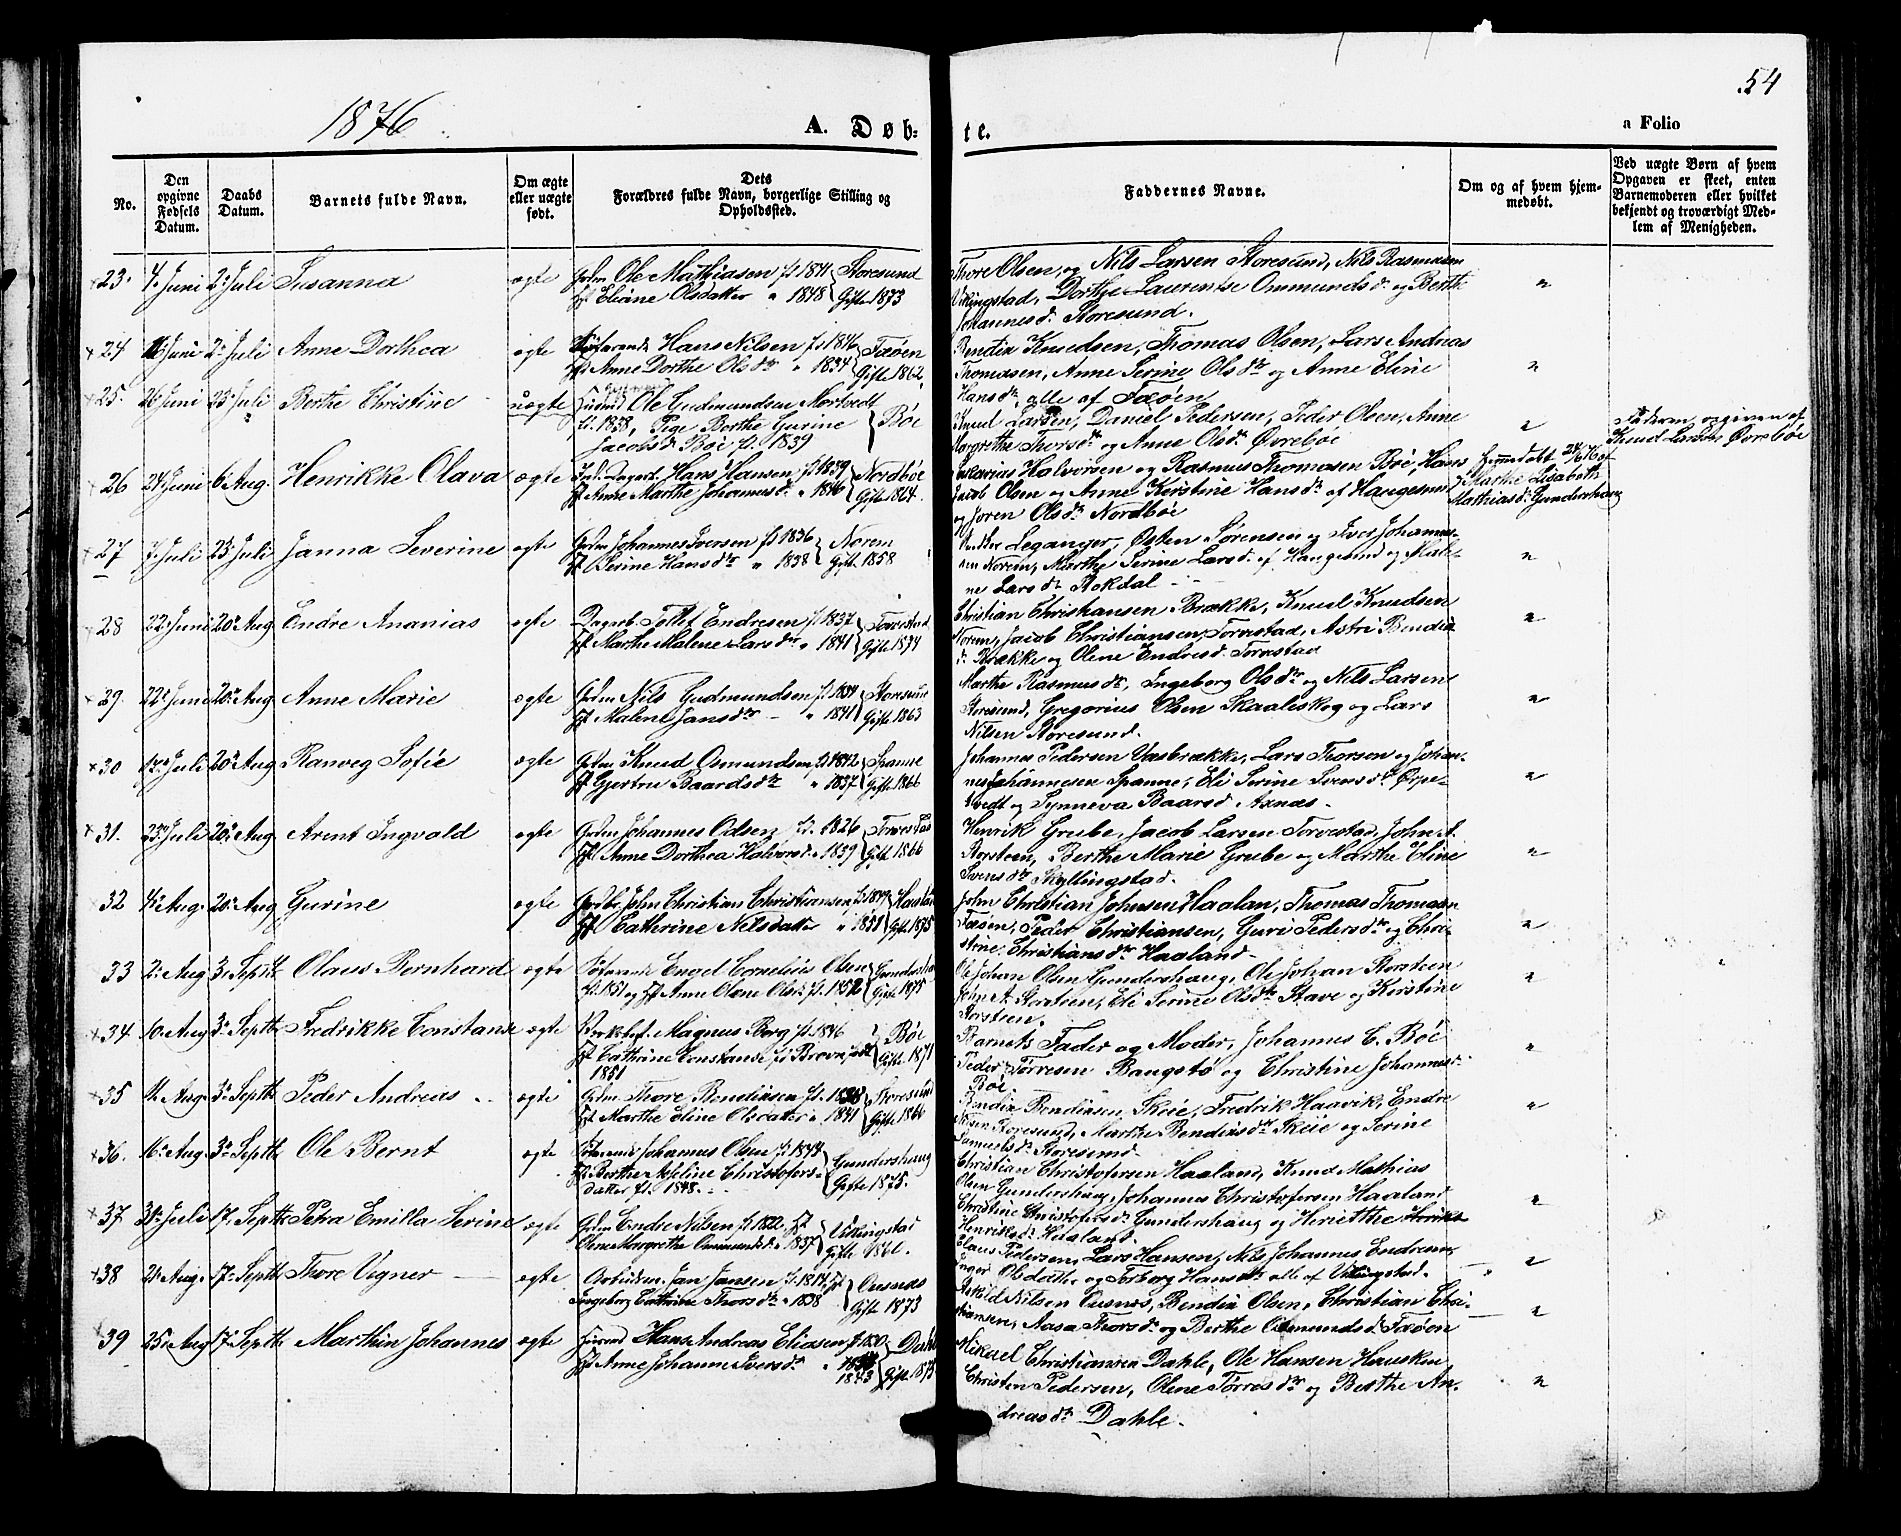 54
1876
A. Døb-
te.
a Folio
No.
Den opgivne Fødsels Datum.
Daabs Datum.
Barnets fulde Navn.
Om ægte eller uægte født.
Dets Forældres fulde Navn, borgerlige Stilling og Opholdssted.
Faddernes Navne.
Om og af hvem hjemmedøbt.
Ved uægte Børn af hvem Opgaven er skeet, enten Barnemoderen eller hvilket bekjendt og troværdigt Medlem af Menigheden.
23. 4. Juni 2. Juli Susanna ægte Ole Mathiasen f. 1841 Storesund
Eliane Olsdatter " 1848 Gifte 1873
Thore Olsen, og Nils Larsen Storesund, Nils Rasmusen
Vikingstad, Dorthe Laurentse Ommundsdr og Berthe
Johannesdr Storesund.
24 Juni 2. Juli Anne Dorthea ægte Hans Nilsen f. 1846 Fæøen
Anne Dorthe Olsdtr " 1834 Gifte 1862
Bendix Knudsen, Thomas Olsen, Lars Andreas
Thomasen, Anne Serine Olsdtr og Anne Eline
Hansdtr alle af Fæøen.
25. 26 Juni 23 Juli Berthe Christine uægte Ole Gudmundsen Mortvedt
f. 1838, Pige Berthe Gurine Bøe
Jacobsdr Bøe f. 1839
Knud Larsen, Daniel Pedersen, Peder Olsen, Anne
Margrethe Thorsdtr og Anne Olsdr Øvrebøe
Faderen opgiven af
Knud Larsen Øvrebøe
26 24 Juni 6. Aug. Henrikke Olava ægte Hans Hansen f. 1839 Nordbøe
Anne Marthe Johannesdr " 1846 Gifte 1864.
Zakarias Halvorsen og Rasmus Thomasen Bøe, Hans
Jacob Olsen og Anne Kirstine Hansdr af Haugesund
og Joren Olsdtr Nordbøe
Hjemmedøbt 24/6 76 af
Marthe Lisabeth
Mathiasdr Gundershaug
27 7. Juli 23. Juli Janna Severine ægte Johannes Iversen f. 1836 Norem
Berine Hansdtr " 1838 Gift 1858
Leganger, Østen Sørensen og Iver Johannesen
Norem, Marthe Serine Larsdr af Haugesund og Malene
Larsdtr Stokdal
28 22. Juni 20. Aug. Endre Ananias ægte Tollef Endresen f. 1837 Torvestad
Marthe Malene Larsdtr " 1841 Gifte 1874
Christian Christiansen Brække, Knud Knudsen
Norem, Jacob Christiansen Torvestad, Astri Bendix
dr Brække og Olene Endresdr Torvestad
29. 22. Juni 20. Aug. Anne Marie ægte Nils Gudmundsen f. 1834 Storesund
Malene Jansdtr " 1841 Gifte 1863
Marthe Rasmusdtr, Ingeborg Olsdtr og Nils Larsen
Storesund, Gregorius Olsen Skaaleskog og Lars
Nilsen Storesund.
30 12. Juli 20. Aug. Ranveg Sofie ægte Knud Osmundsen f. 1842 Spanne
Gjertru Baardsdtr " 1837 Gifte 1866
Johannes Pedersen Vasbrække, Lars Thorsen og Johannes
Johannesen Spanne, Eli Serine Svensdtr Ørpetvedt
og Synneva Baarsd. Axnæs.
31. 23. Juli 20. Aug. Arent Ingvald ægte Johannes Odsen f. 1826 Torvestad
Anne Dorthea Halvorsd " 1839 Gift 1866
Henrik Grube, Jacob Larsen Torvestad, John A.
Storsteen, Berthe Marie Grube og Marthe Eline
Svensdtr Skyllingstad.
32 4. Aug. 20. Aug Gurine ægte John Christian Christiansen f. 1849 Haaland
Cathrine Nilsdatter " 1851 Gifte 1875
John Christian Johnsen Haaland, Thomas Thomasen
Fæøen, Peder Christiansen, Guri Pedersdtr og Christine
Christiansdtr Haaland.
33 2. Aug 3. Septb. Olaus Bernhard ægte Engel Cornelius Olsen Gundershaug
f. 1851 og Anne Olene Olsd. f. 1852 Gifte 1875
Ole Johan Olsen Gundershaug, Ole Johan Storsteen
John A. Storsteen, Eli Serine Olsdtr Stave og Kirstine
Storsteen.
34 10. Aug 3. Septb Fredrikke Constanse ægte Magnus Berg f. 1846 Bøe
Cathrine Constanse f. Brovn, født Gifte 1871
1851
Barnets Fader og Moder, Johannes C. Bøe
Peder Torresen Bangstø og Christine Johannesd.
Bøe
35 Aug. 3. Septb Peder Andreas ægte Thore Bendixsen Storesund
Marthe Eline Olsdatter " 1841 Gifte 1866
Bendix Bendixsen Skeie, Fredrik Haavik, Endre
Olsen Storesund, Marthe Bendixsdtr Skeie og Serine
Samuelsdr Storesund
36. 16. Aug. 3. Septb Ole Bernt ægte Johannes Olsen f. 1844 Gundershaug
Berthe Christofersdatter
f. 1848. Gifte 1875.
Christian Christofersen Haaland, Knud Mathias
Olsen Gundershaug, Johannes Christofersen Haaland
Christine Christofersdr Gundershaug og Henriette
Henriksdr Haaland.
37 31. Juli 17. Septb Petra Emilla Serine ægte Endre Nilsen f. 1822 Vikingstad
Olene Margrethe Ommundsdr " 1837 Gifte
Claus Pedersen, Lars Hansen, Nils Johannes Endresen,
Inger Olsdatter og Torborg Hansdtr alle af Vikingstad.
38 Aug. 17. Septb Thore Vigner ægte Jan Jansen Gifte 1873
Ingeborg Cathrine Thorsdtr " 1838
Askild Nilsen Ousnes, Bendix Olsen, Christian Christiansen,
Aasa Thorsdr og Berthe Osmundsdr Fæøen
39 25. Aug 17. Septb Marthin Johannes ægte Hans Andreas Eliasen Dahle
Anne Johanne Iversdr 1843 Gifte 1873
Mikael Christiansen Dahle, Ole Hansen Hausken
Christen Pedersen, Olene Torresdtr og Berthe Andreasdtr
Dahle.